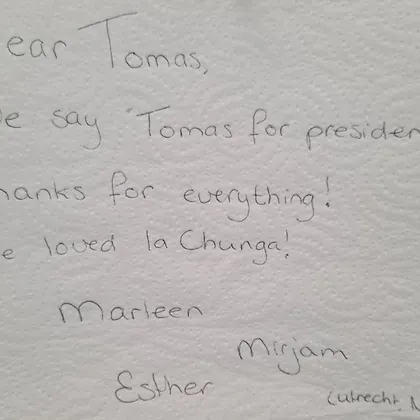 ear Tomas,
e say "Tomas for presiden
hanks for everything!
e loved la Chunga!
Marleen
Mirjam
Esther
(utrecht N